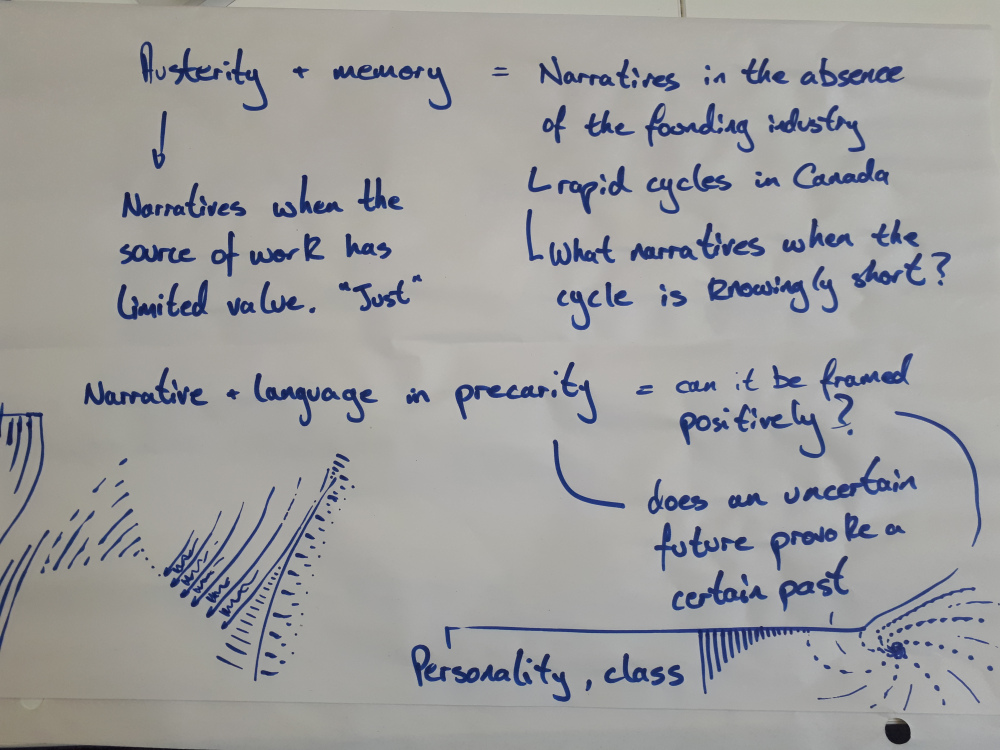 Austerity + memory = Narratives in the absence
of the founding industry
rapid cycles in Canada
What narratives when the
cycle is knowingly short?
Narratives when the
source of work has
limited value. "Just"
Narrative + language in precarity = can it be framed
positively?
does an uncertain
future provoke a
certain past
Personality, class